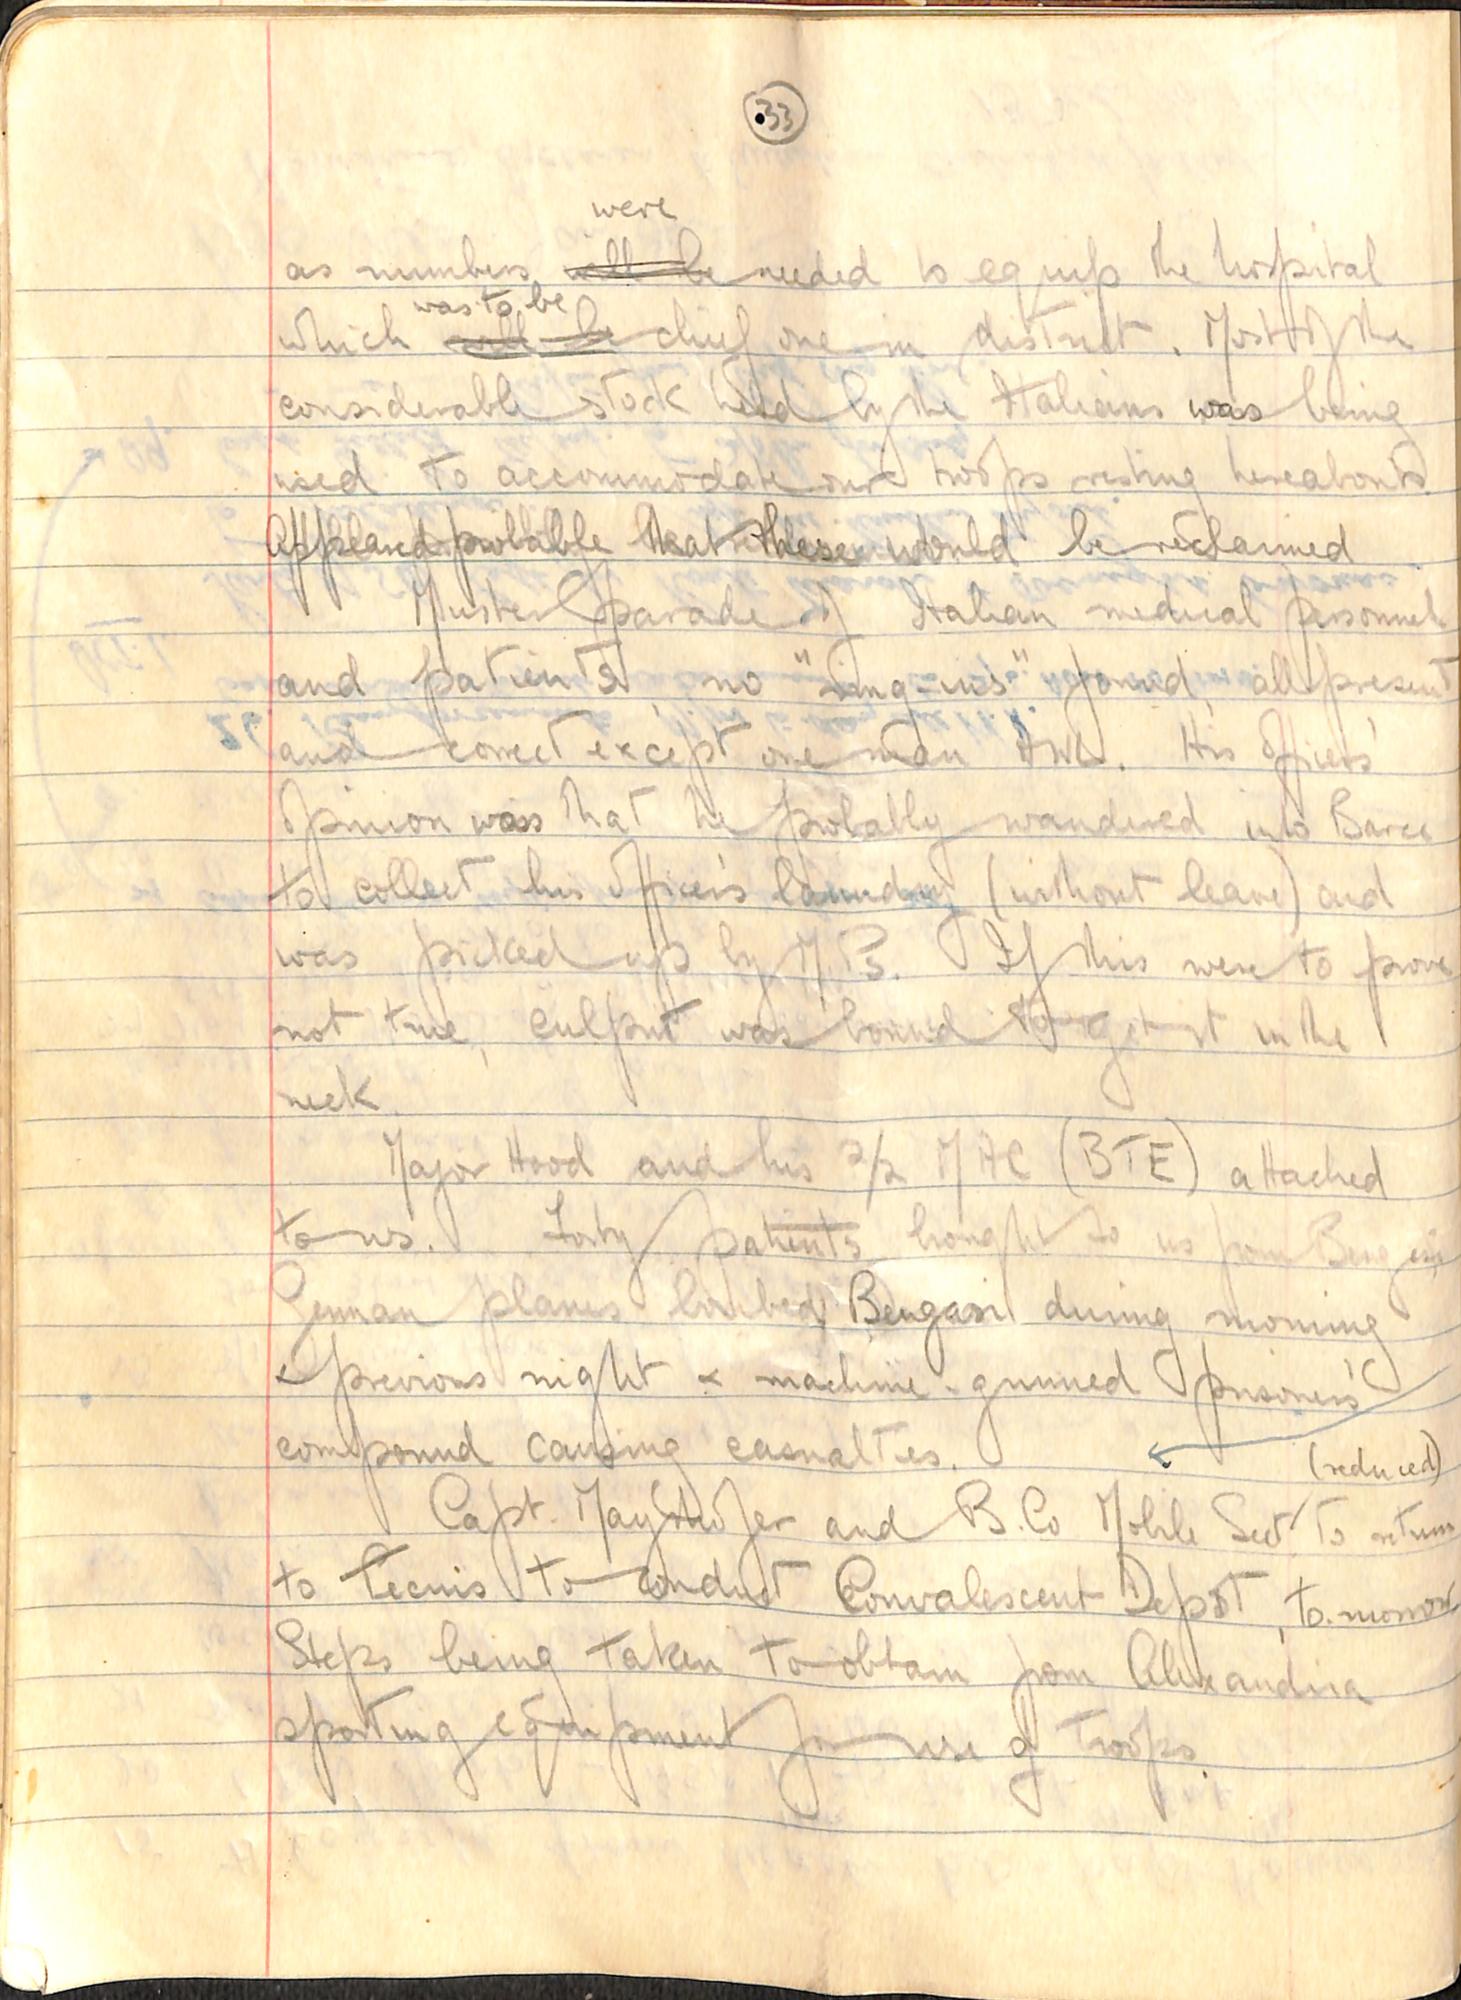 33
were
as numbers will be needed to equip the hospital
was to be
which will be chief one in district. Most of the
considerable stock held by the Italians was being
used to accommodate our troops resting hereabouts.
Appeared probable that these would be reclaimed
Muster parade of Italian medical personnel
and patients, no "ring-ins" found, all present
and correct except one man AWL. His officers'
opinion was that he probably wandered into Barce
to collect his officer's laundry (without leave) and
was picked up by M.Ps. If this were to prove
not true, culprit was bound to get it in the
neck
Major Hood and his 2/2 MAC (BTE) attached
to us. Forty patients brought to us from Bengasi
German planes bombed Bengasi during morning
& previous night & machine-gunned prisoners'
compound causing casualties.
(reduced)
Capt. Mayrhofer and B.Co Mobile Sect to return
to Tecnis to conduct Convalescent Depot, to-morrow
Steps being taken to obtain from Alexandria
sporting equipment for use of troops.